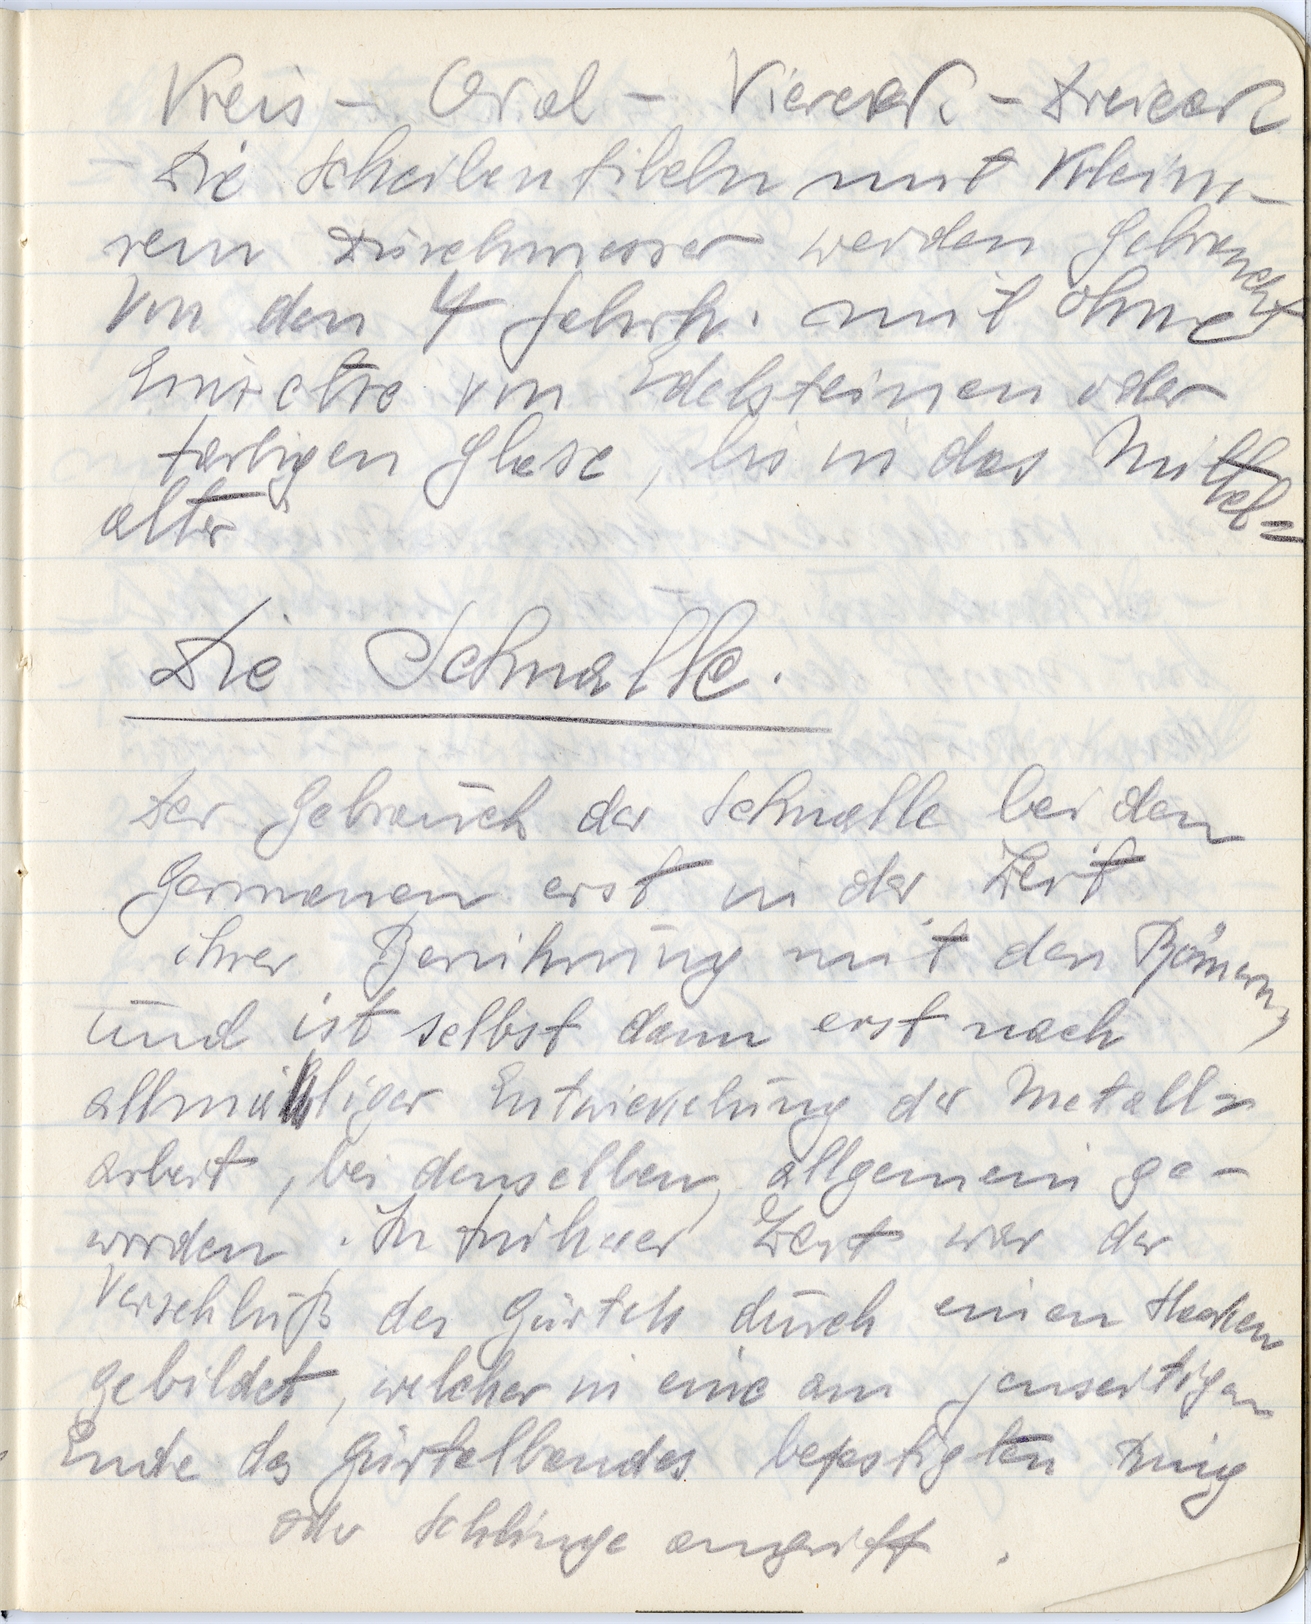 Kreis – Oval – Viereck. – Dreieck
Die Scheibenfibeln mit kleine-
rem Durchmesser werden gebraucht
von den 4 Jahrh. mit ohne
Einsätze von Edelsteinen oder
farbigen Glase, bis in das Mittel=
alter
Die Schnalle.
Der Gebrauch der Schnalle bei den
Germanen erst in der Zeit
ihrer Berührung mit den Römern,
und ist selbst dann erst nach
allmäliger Entwickelung der Metall=
arbeit, bei denselben, allgemein ge-
worden. In früherer Zeit war der
Verschluß des Gürtels durch einen Haken
gebildet, welcher in eine am jenseitigen
Ende des Gürtelbandes befestigten Ring
oder Schlinge angriff.